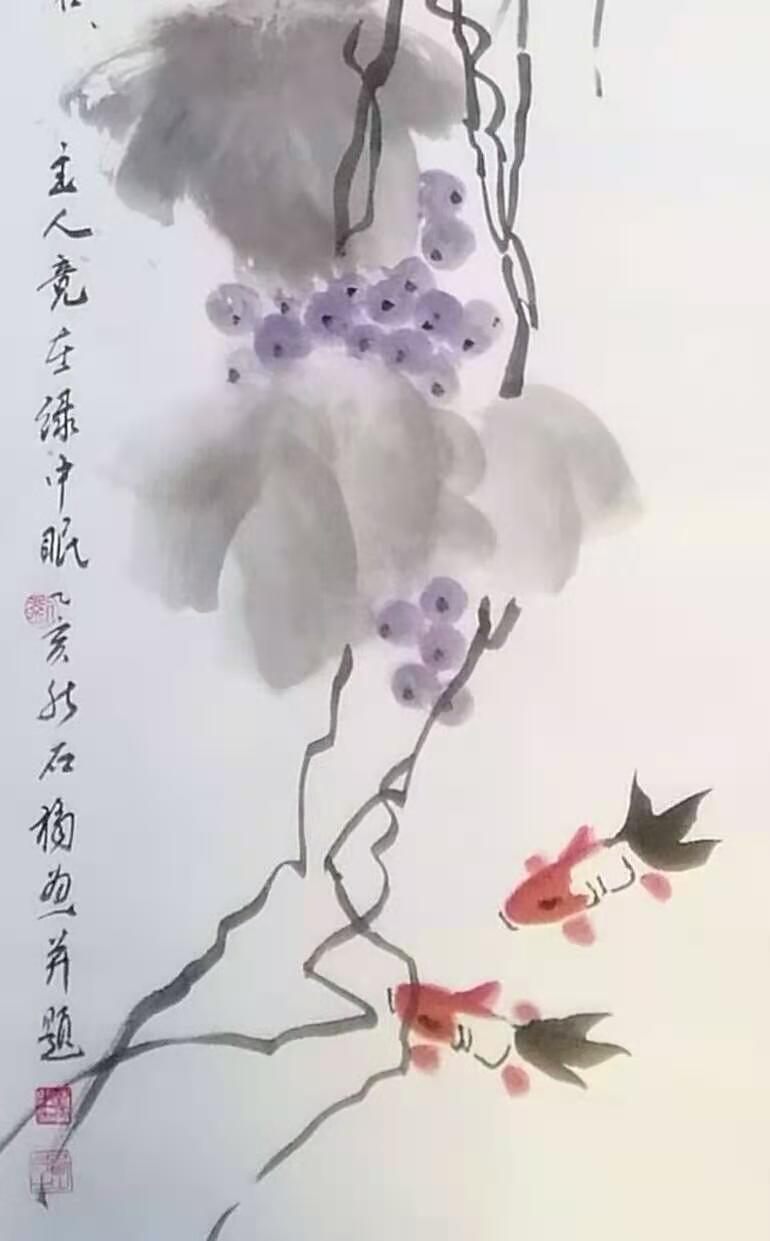 主人竟在绿中眠 亥秋石画并题